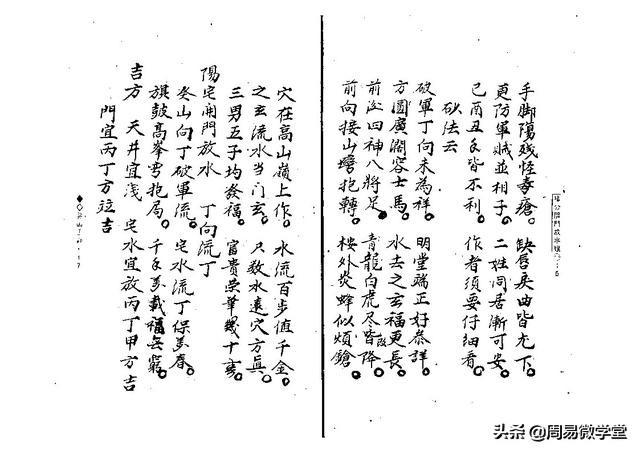 手脚傷残怪毒瘡。 缺唇曲皆下。
更防軍賊並相子。 二姓同居漸可安。
巳酉丑年皆不利。 作者須要仔細看。
砂法云
破軍丁向未為祥。 明堂端正好恭詳。
方圓廣濶容士馬。 水去之玄福更長。
前後四神八將足。 青龍白虎尽皆降。
前向接山彎抱轉。 樓外炎蜂似煩鎗。
穴在高山嶺上作。 水流百步值千金。
之玄流水当门玄。 只教水遠穴方真。
三男五子均發福。 富貴榮華幾十
陽宅開門放水 丁向流丁
癸山向丁破軍流。 宅水流丁保萬春。
旗鼓高峯弯抱局。 千年萬載福無窮。
吉方 天井宜浅 宅水宜放丙丁甲方吉
門宜丙丁方位吉
头条 @周易微学堂